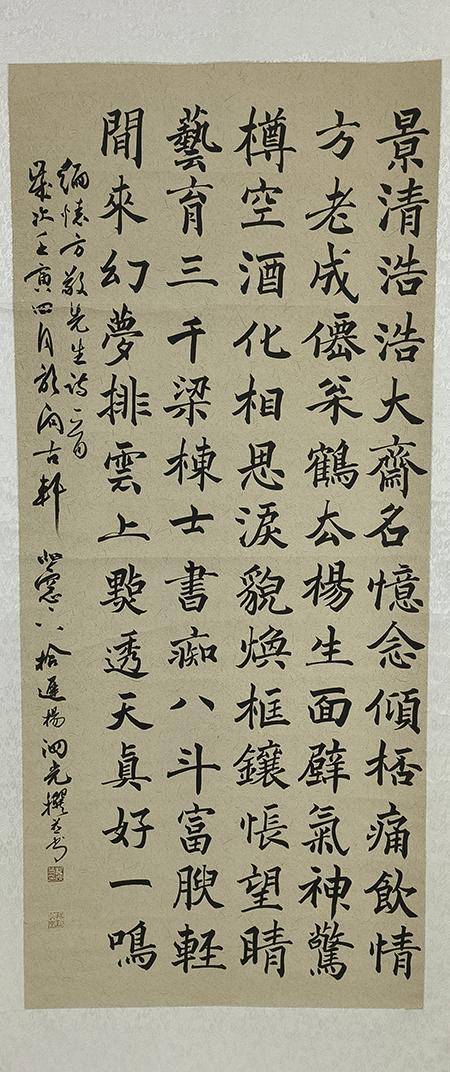 景清浩浩大齋名憶念傾桮痛飲情
方老成僊鶴厺楊生面壁氣神驚
樽空酒化相思淚貌煥框鑲悵望睛
藝育三千梁棟士書痴八斗富腴軽
閒來幻夢排雲上點透天眞好一鳴
緬懷方敬先生詩一首
歲次壬寅四月於古軒 八拾遲楊泗光撰並書